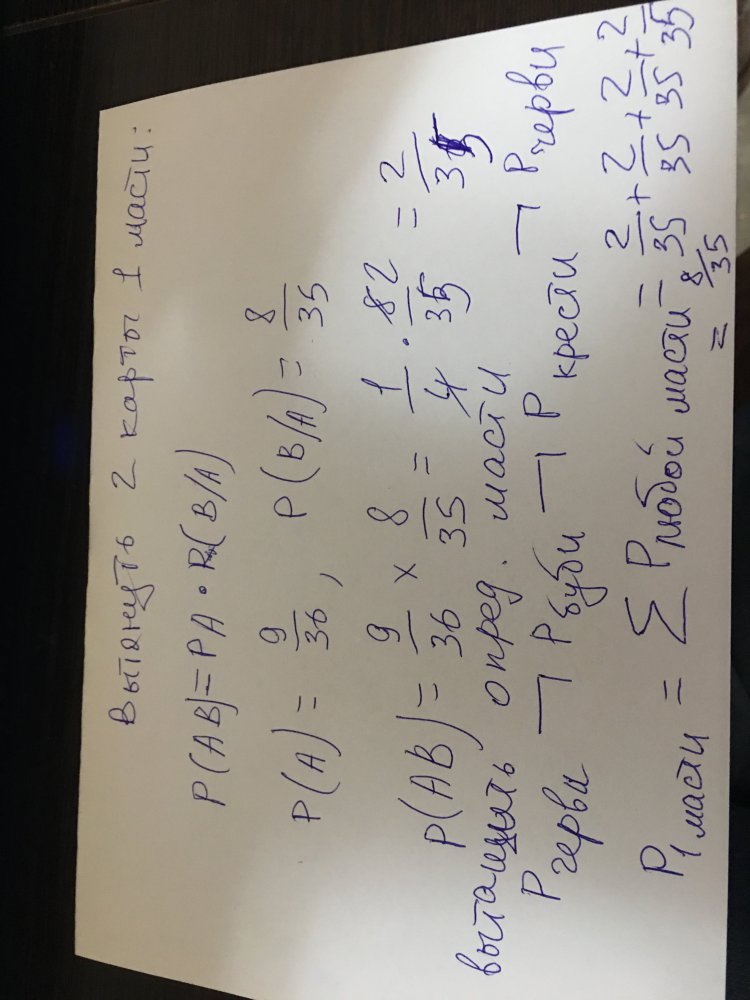 Вытянуть 2 карты 1 масти:
P(AB)=PA·P(B/A)
P(A) = 9/36, P(B/A) = 8/35
P(AB) = 9/36 × 8/35 = 1/4 · 82/35 = 2/35
вытащить опред. масти
Pчерви ¬ Pбуби ¬ Pкрести ¬ Pчерви
P1 масти = ∑ Pлюбой масти = 2/35 + 2/35 + 2/35 + 2/35
= 8/35